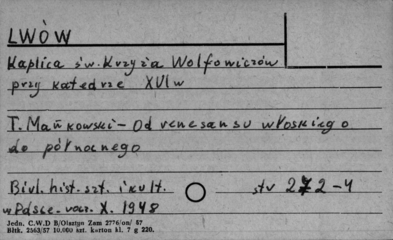 LWÓW
Kaplica św. Krzyża Wolfowiczów
przy katedrze XVI w
T. Mańkowski – Od renesansu włoskiego
do północnego
Biul. hist. szt. i kult. str 272-4
w Polsce. rocz. X. 1948
Jedn. C.W.D B/Olsztyn Zam 2776/on/ 57
Błtk. 2563/57 10.000 szt. karton kl. 7 g 220.